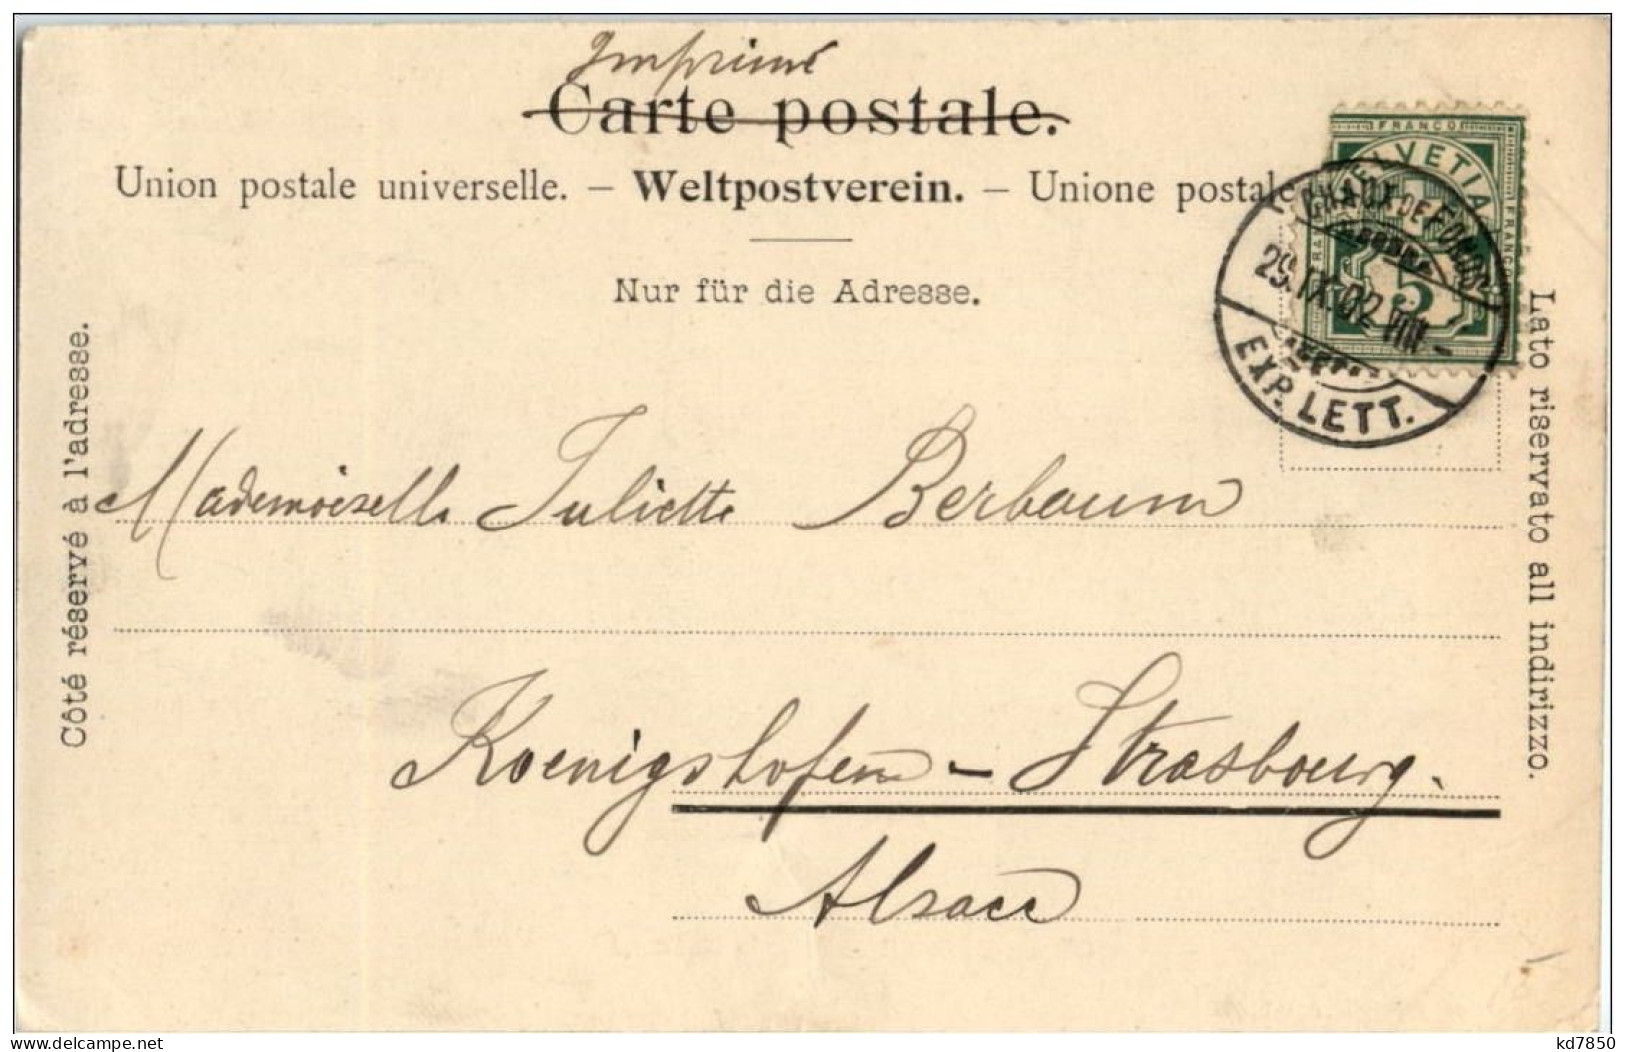 Imprimé
Carte postale.
Union postale universelle. – Weltpostverein. – Unione postale
Nur für die Adresse.
Côté réservé à l'adresse.
Lato riservato all indirizzo.
FRANCO
HELVETIA
FRANCO
5
CHAUX DE FONDS
29.IX.02.VIII –
EXP. LETT.
Mademoiselle Juliette Berbaum
Koenigshofen – Strasbourg.
Alsace
kd7850